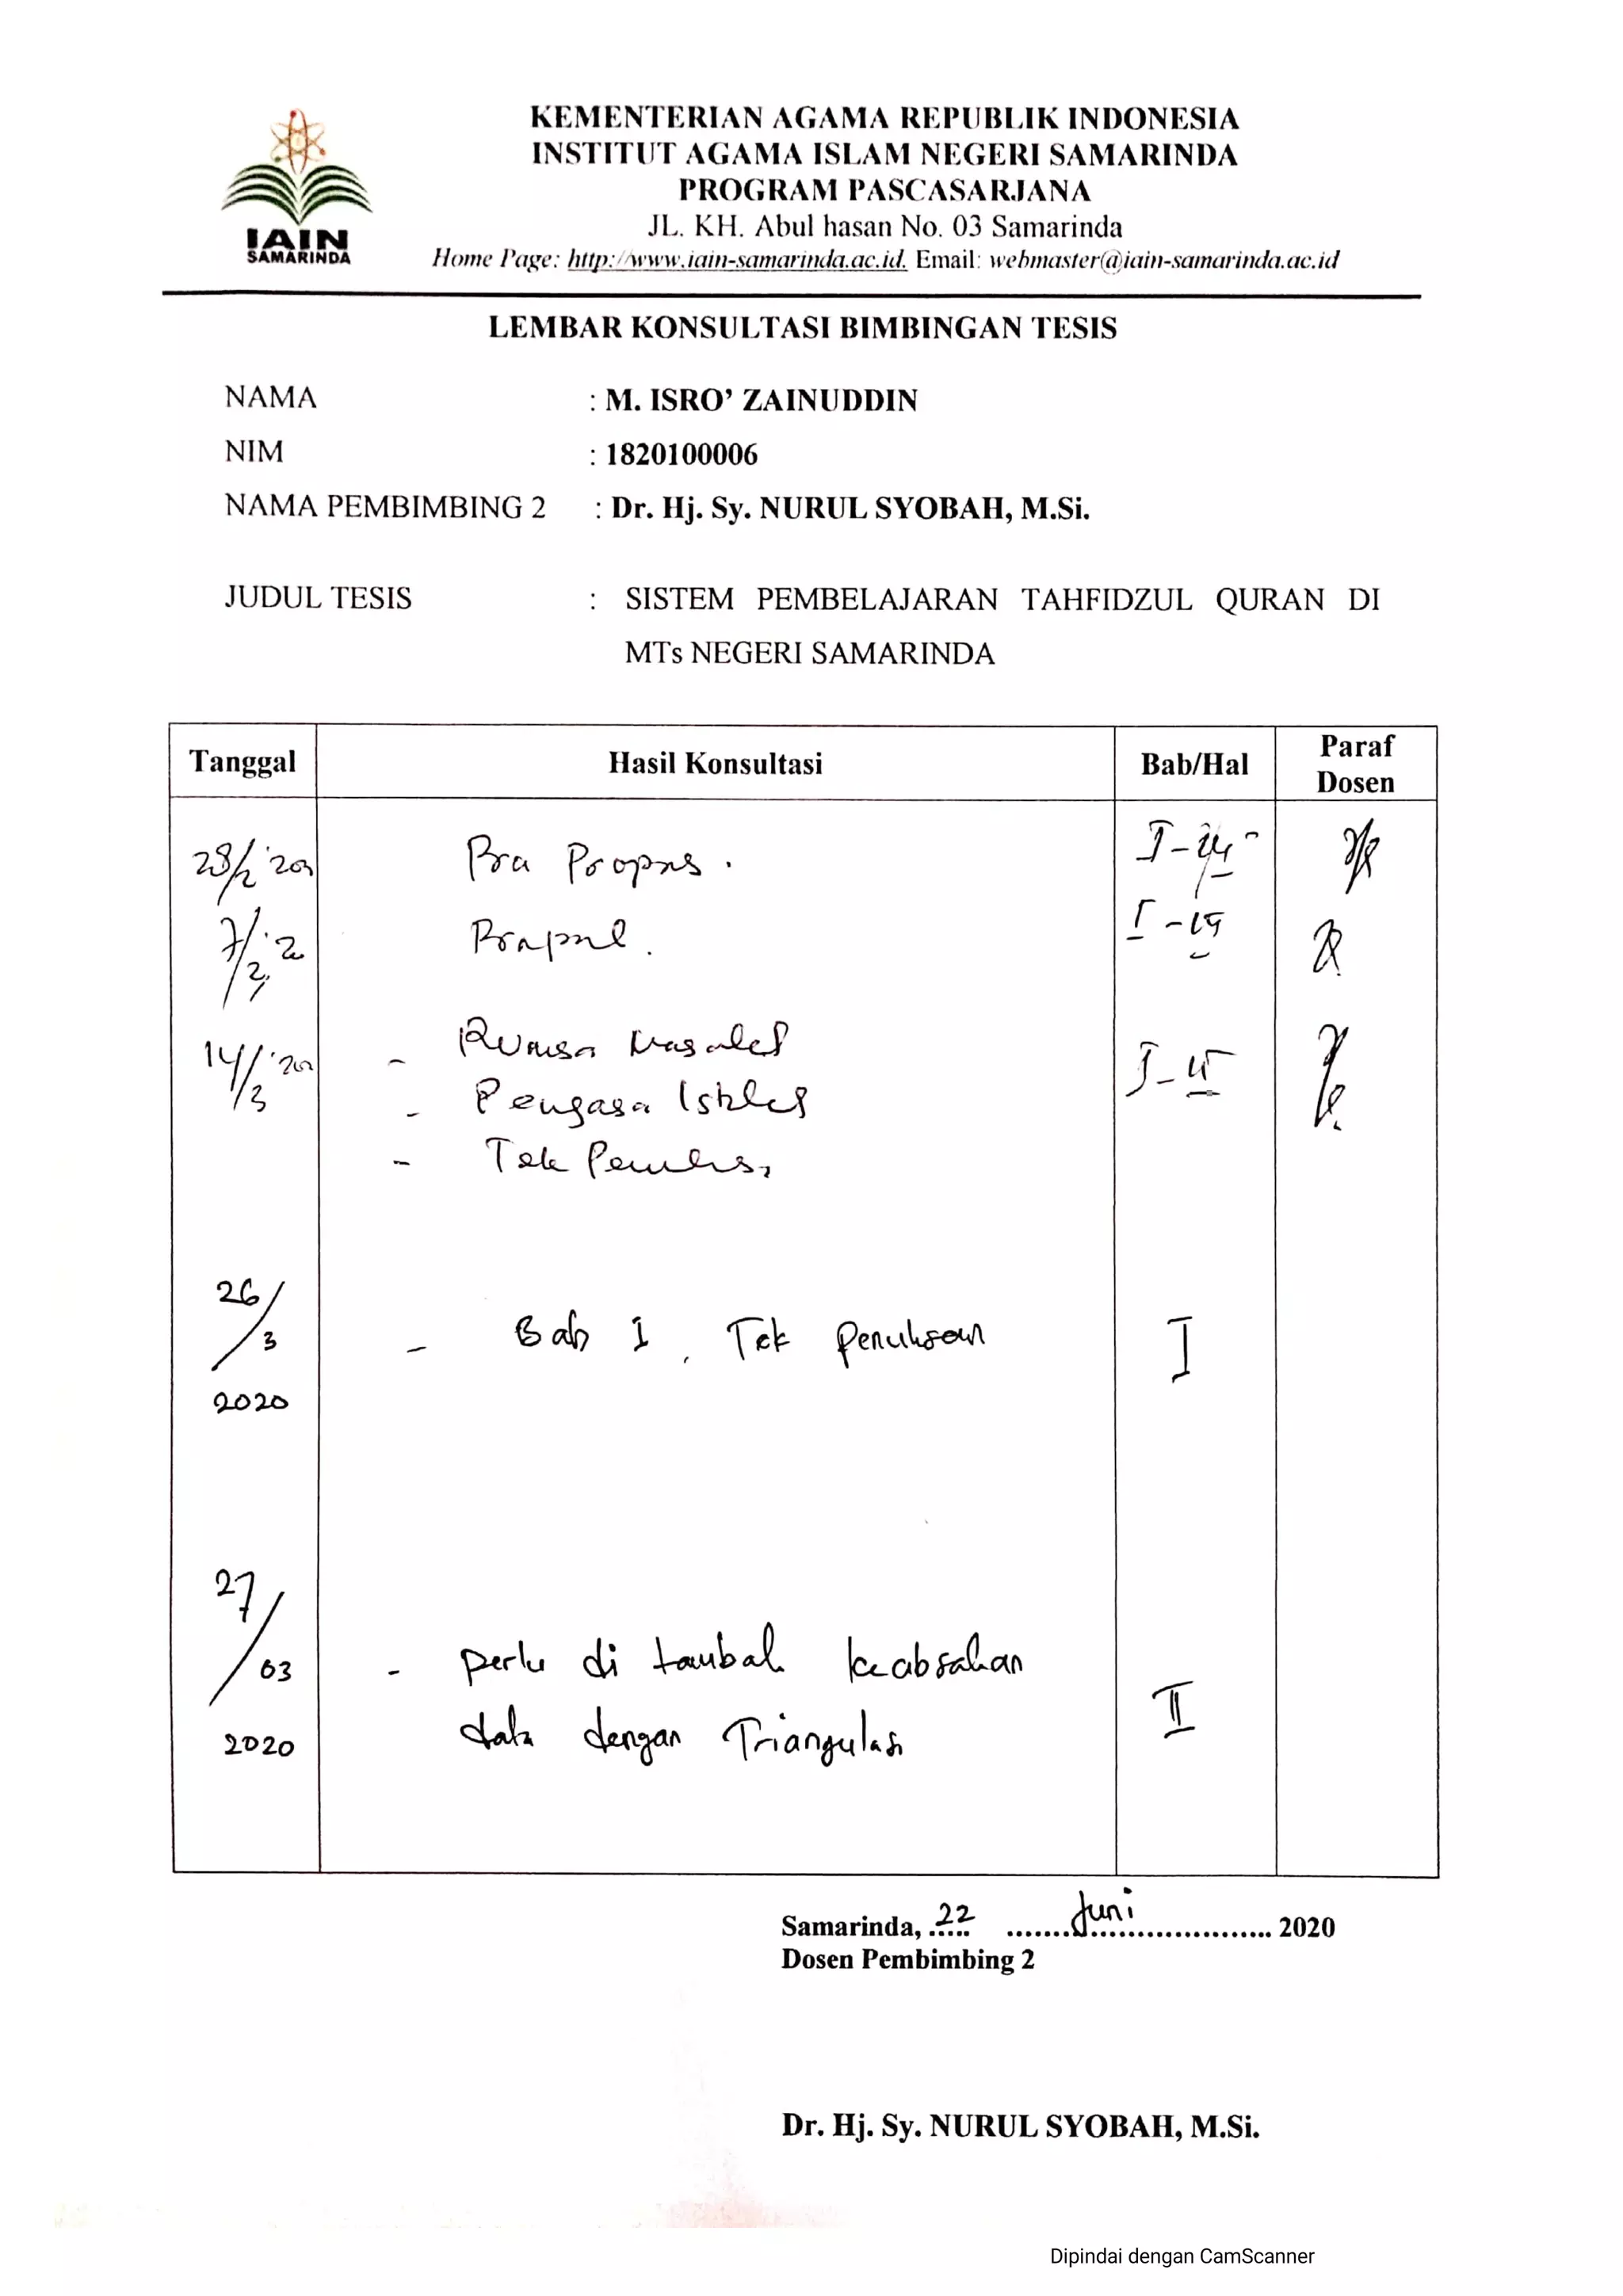 KEMENTERIAN AGAMA REPUBLIK INDONESIA
INSTITUT AGAMA ISLAM NEGERI SAMARINDA
PROGRAM PASCASARJANA
JL. KH. Abul hasan No. 03 Samarinda
Home Page: http://www.iain-samarinda.ac.id. Email: webmaster@iain-samarinda.ac.id
IAIN
SAMARINDA
LEMBAR KONSULTASI BIMBINGAN TESIS
NAMA : M. ISRO’ ZAINUDDIN
NIM : 1820100006
NAMA PEMBIMBING 2 : Dr. Hj. Sy. NURUL SYOBAH, M.Si.
JUDUL TESIS : SISTEM PEMBELAJARAN TAHFIDZUL QURAN DI
MTs NEGERI SAMARINDA
Tanggal Hasil Konsultasi Bab/Hal Paraf Dosen
Pra
14/3
-
-
- Tek
26/3 2020 - Bab I, Tek Penulisan I
27/03 - perlu di tambah keabsahan
2020 data dengan Triangulasi II
Samarinda, 22 Juni 2020
Dosen Pembimbing 2
Dr. Hj. Sy. NURUL SYOBAH, M.Si.
Dipindai dengan CamScanner